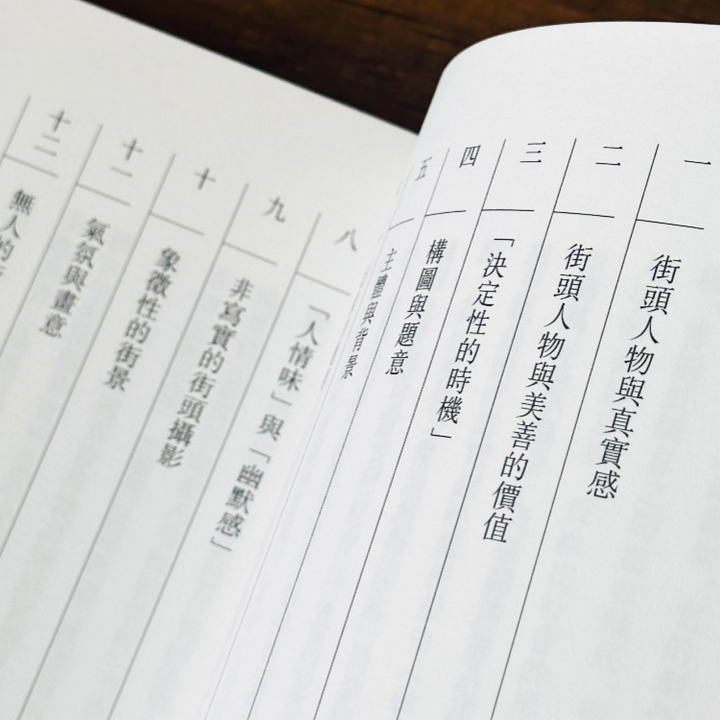 一
街頭人物與真實感
二
街頭人物與美善的價值
三
「決定性的時機」
四
構圖與題意
五
主體與背景
八
「人情味」與「幽默感」
九
非寫實的街頭攝影
十
象徵性的街景
十一
氣氛與畫意
十二
無人的